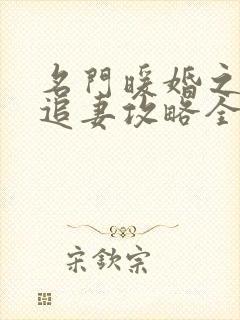 名門暖婚之
追妻攻略全
宋欽宗